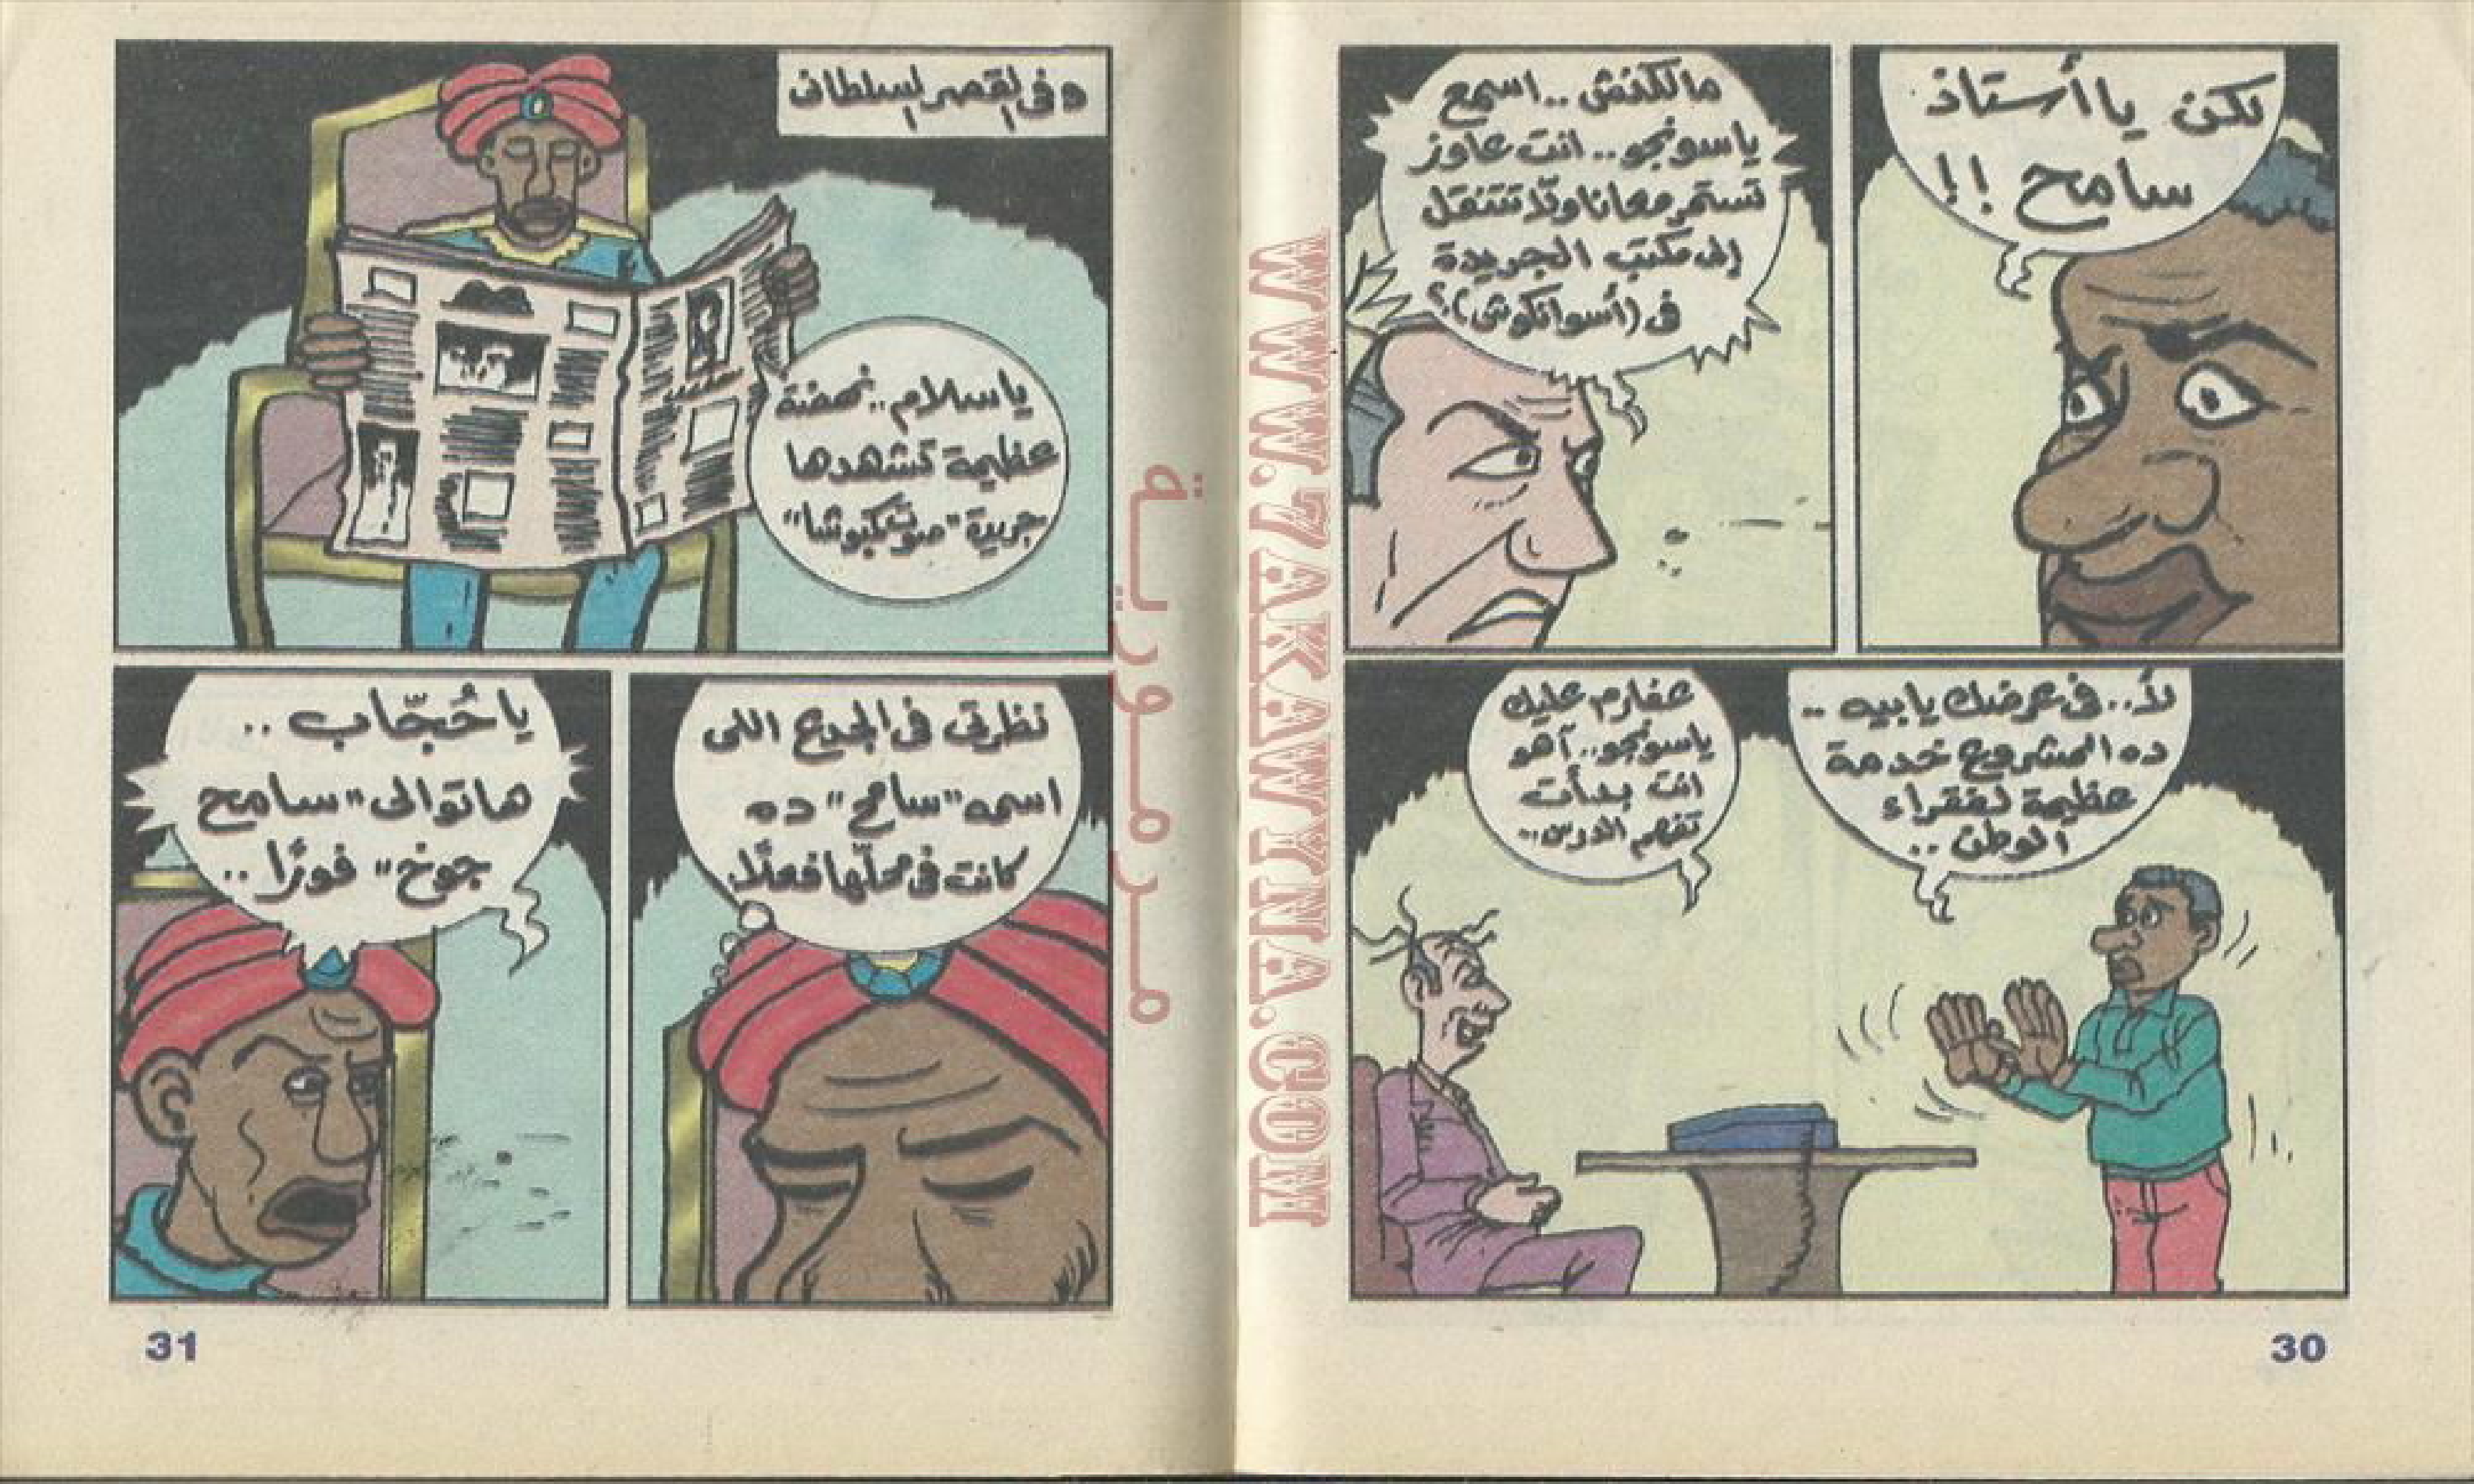 لكن يا أستاذ
سامح !!
مالكنش .. اسمع
ياسونجو .. انت عاوز
تستمر معانا ولّا تتنقل
إلى مكتب الجريدة
فى (أسوانكوش)؟
لأ .. فى عرضك يا بيه ..
ده المشروع خدمة
عظيمة لفقراء
الوطن ..
عفارم عليك
ياسونجو .. آهو
انت بدأت
تفهم الدرس ..
30
وفى القصر السلطانى
ياسلام .. نهضة
عظيمة تشهدها
جريدة "صوت كبوشا"
نظرتى فى الجدع اللى
اسمه "سامح" ده
كانت فى محلّها فعلًا
يا حُجّاب ..
هاتوا لى "سامح
جوخ" فورًا ..
31
مرمورية
WWW.ZAKAWTNA.COM